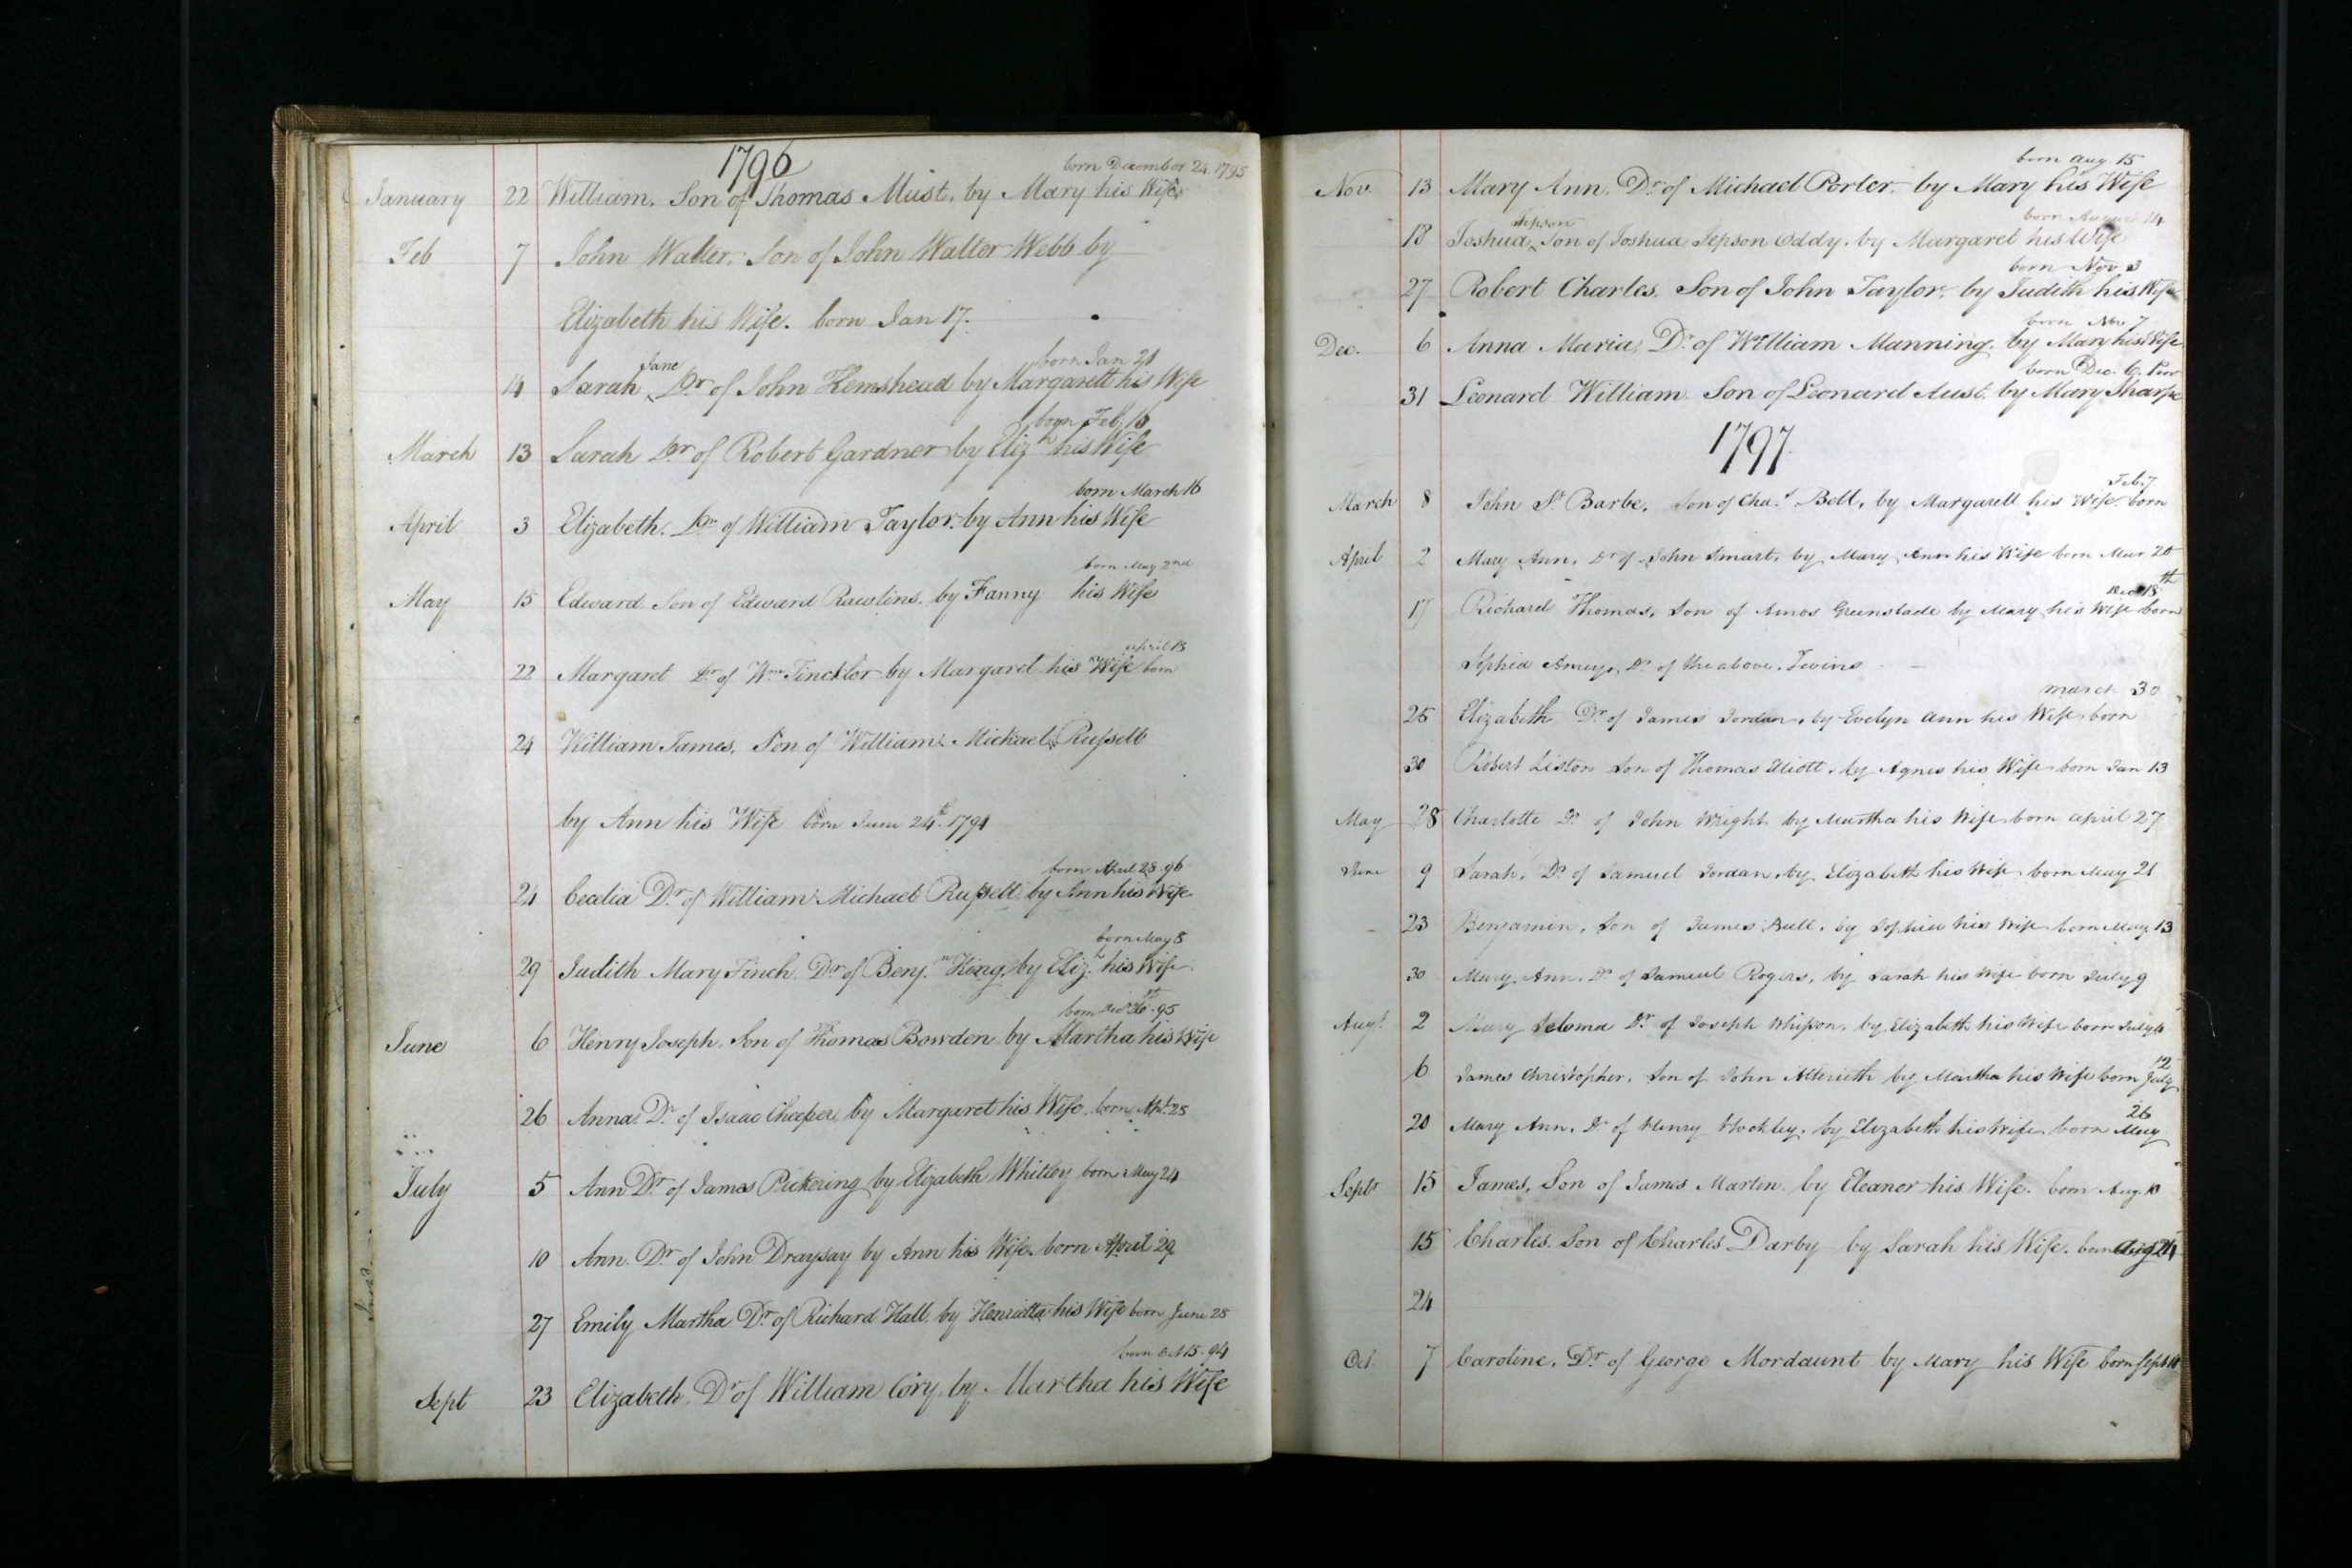 1796
born December 24. 1795
January 22 William, Son of Thomas Must, by Mary his Wife
Feb 7 John Walter, Son of John Walter Webb by
Elizabeth his Wife. born Jan 17.
Jane born Jan 21
14 Sarah Dr of John Hemshead by Margarett his Wife
born Feb 16
March 13 Sarah Dr of Robert Gardner by Elizth his Wife
born March 16
April 3 Elizabeth. Dr of William Taylor. by Ann his Wife
born May 2nd
May 15 Edward Son of Edward Rawlins. by Fanny his Wife
april 13
22 Margaret Dr of Wm Tincklor by Margaret his Wife born
24 William James, Son of William Michael Russell
by Ann his Wife born June 24th 1794
born April 28. 96
24 Cecilia Dr of William Michael Russell by Ann his Wife
born May 8
29 Judith Mary Finch. Dr of Benjn King, by Elizh his Wife
born 95
June 6 Henry Joseph. Son of Thomas Bowden by Martha his Wife
26 Anna. Dr of Isaac by Margaret his Wife. born Apl. 25
July 5 Ann Dr of James Pickering by Elizabeth Whitley born May 24
10 Ann. Dr of John Draysay by Ann his Wife. born April 29
27 Emily Martha Dr of Richard Hall. by Henrietta his Wife born June 25
born Oct 15. 94
Sept 23 Elizabeth. Dr of William Cory. by Martha his Wife
born Aug 15
Nov. 13 Mary Ann. Dr of Michael Porter. by Mary his Wife
Jepson born August 14
18 Joshua Son of Joshua Jepson Oddy. by Margaret his Wife
born Nov 3
27 Robert Charles. Son of John Taylor. by Judith his Wife
born Nov 7
Dec. 6 Anna Maria, Dr of William Manning. by Mary his Wife
born Dec. 6.
31 Leonard William. Son of Leonard Aust. by Mary Sharpe
1797
Feb. 7
March 8 John St Barbe, Son of Chas Bell, by Margarett his Wife born
April 2 Mary Ann, Dr of John Smart, by Mary Ann his Wife born Mar 20
18th
17 Richard Thomas, Son of Amos Greenslade by Mary his Wife born
Sophia Dr of the above. Twins
march 30
25 Elizabeth Dr of James Jordan. by Evelyn Ann his Wife born
30 Robert Liston Son of Thomas Eliott. by Agnes his Wife born Jan 13
May 28 Charlotte Dr of John Wright by Martha his Wife born april 27
June 9 Sarah, Dr of Samuel Jordan, by Elizabeth his Wife born May 21
23 Benjamin, Son of James Bull, by Sophia his Wife born May 13
30 Mary Ann. Dr of Samuel Rogers, by Sarah his Wife born July 9
Augt 2 Mary Dr of Joseph by Elizabeth his Wife born July
12
6 James Christopher, Son of John by Martha his Wife born July
26
20 Mary Ann. Dr of Henry Hockley. by Elizabeth his Wife born May
Sept 15 James, Son of James Marten by Eleanor his Wife. born Aug. 10
15 Charles. Son of Charles Darby by Sarah his Wife. born Aug 24
24
Oct. 7 Caroline, Dr of George Mordaunt by Mary his Wife born Sept